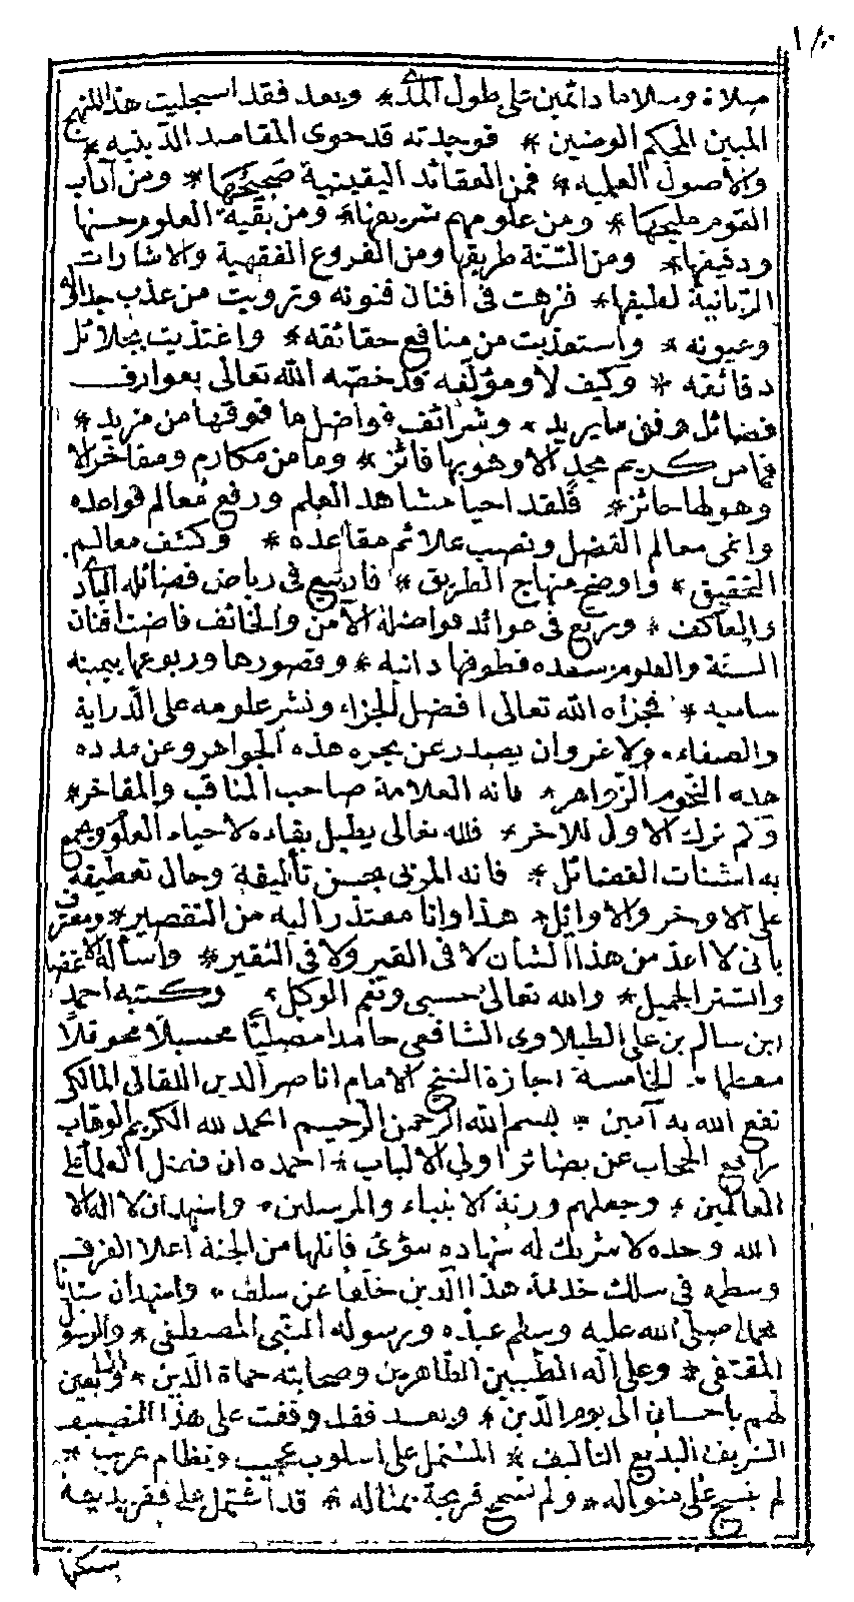 صلاة وسلاما دائمين على طول المدى * وبعد فقد استجليت هذا المنهج
المبين المحكم الوضين * فوجدته قد حوى المقاصد الدينيه *
والأصول العلميه * فمن العقائد اليقينية صحيحها * ومن آداب
القوم مليحها * ومن علومهم شريفها * ومن بقية العلوم حسنها
ودقيقها * ومن السنة طريقها ومن الفروع الفقهية والاشارات
الربانية لطيفها * فزهت في أفنان فنونه وترويت من عذب جداوله
وعيونه * واستعذبت من منافع حقائقه * واغتذيت بجلائل
دقائقه * وكيف لا ومؤلفه قد خصه الله تعالى بعوارف
فضائل وفق ما يريد * وشرائف فواضل ما فوقها من مزيد *
فما من كريم مجد الا وهو بها فائز * وما من مكارم ومفاخر الا
وهو لها حائز * فلقد احيا مشاهد العلم ورفع معالم قواعده
وانمى معالم الفضل ونصب علائم مقاعده * وكشف معالم
التحقيق * واوضح منهاج الطريق * فارتبع في رياض فضائله البادي
والعاكف * ومربع في عوائد فواضله الآمن والخائف فاضت افنان
السنة والعلوم سعده قطوفها دانيه * وقصورها وربوعها بيمينه
ساميه * فجزاه الله تعالى افضل الجزاء ونشر علومه على الدراية
والصفاء * ولا غرو ان يصدر عن بحره هذه الجواهر وعن مدده
هذه النجوم الزواهر * فانه العلامة صاحب المناقب والمفاخر *
وكم ترك الاول للاخر * فالله تعالى يطيل بقاءه لاحياء العلوم ويجمع
به اشتات الفضائل * فانه المربى بحسن تأليفه وحال تعطيفه
على الاوخر والاوائل * هذا وانا معتذر اليه من التقصير * ومعترف
بأنى لا اعد من هذا الشان لا في العير ولا في النفير * واسأله الاغضا
والستر الجميل * والله تعالى حسبي ونعم الوكيل * وكتبه احمد
ابن سالم بن على الطبلاوى الشافعي حامدا مصليا محسبلا محوقلا
مسلما * الخامسة اجازة الشيخ الامام ناصر الدين اللقانى المالكى
نفع الله به آمين * بسم الله الرحمن الرحيم الحمد لله الكريم الوهاب
رافع الحجاب عن بصائر اولي الالباب * احمده ان فضل العلماء على
العالمين * وجعلهم ورثة الانبياء والمرسلين * واشهد ان لا اله الا
الله وحده لا شريك له شهادة تبوئ قائلها من الجنة اعلا الغرف
وسطره في سلك خدمة هذا الدين خلفا عن سلف * واشهد ان سيدنا
محمدا صلى الله عليه وسلم عبده ورسوله النبى المصطفى * والرسول
المقتفى * وعلى آله الطيبين الطاهرين وصحابته حماة الدين * والتابعين
لهم باحسان الى يوم الدين * وبعد فقد وقفت على هذا التصنيف
الشريف البديع التاليف * المشتمل على اسلوب عجيب ونظام غريب *
لم ينسج على منواله * ولم تسمح قريحة بمثاله * قد اشتمل على فقر بديعة